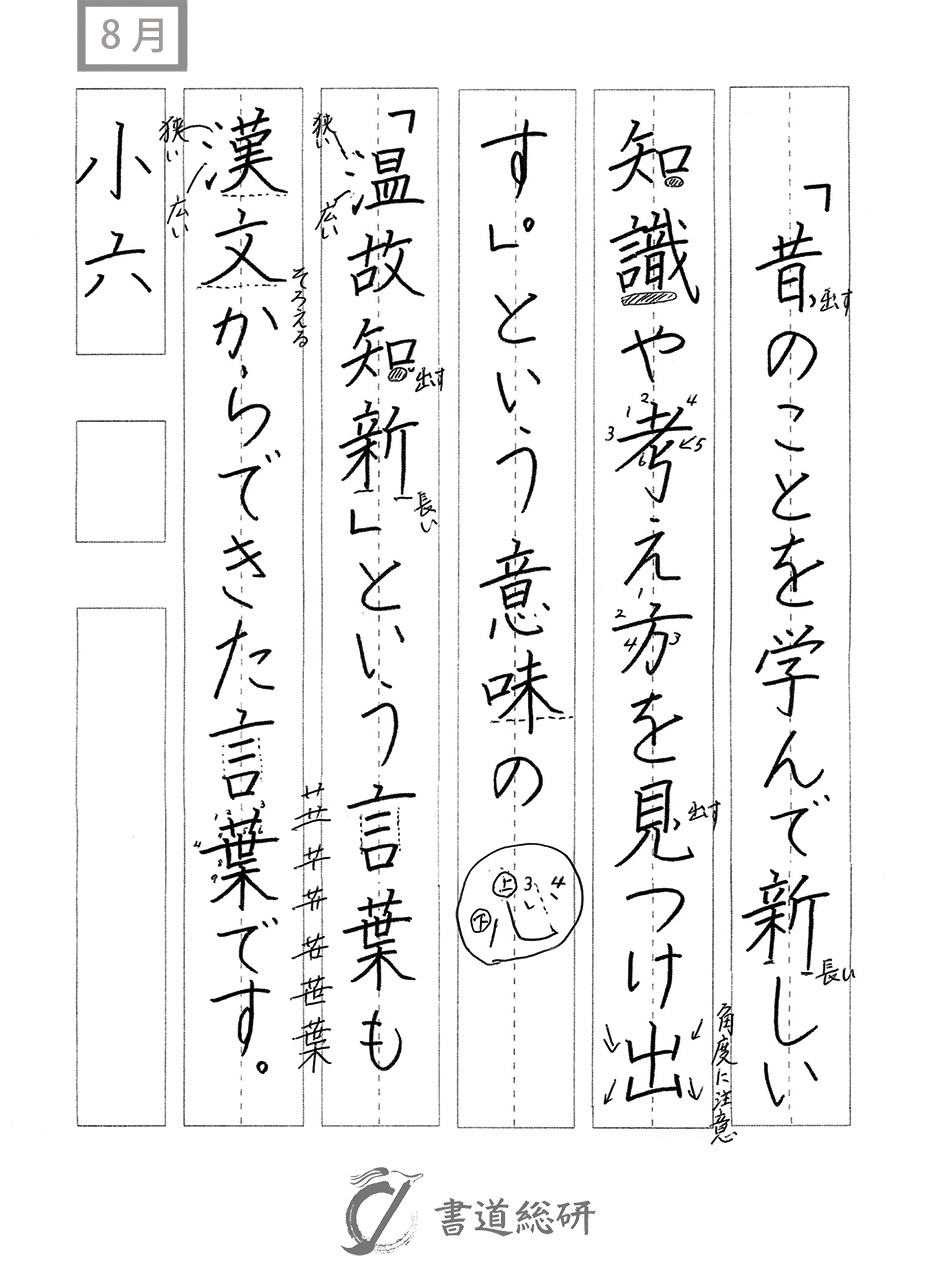 8月
「昔のことを学んで新しい
出す
長い
知識や考え方を見つけ出
1 2 3 4 5 6
出す
角度に注意
す。」という意味の
1 2 3 4
上 3 4
下
「温故知新」という言葉も
狭い
広い
出す
長い
漢文からできた言葉です。
狭い
広い
そろえる
小六
書道総研